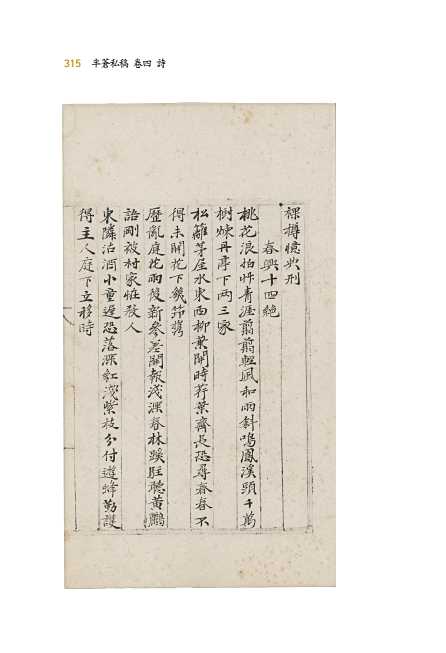 315 半蒼私稿 卷四 詩
裸樽憶典刑
春興十四絶
桃花浪拍岸靑涯翦翦輕風和雨斜鳴鳳溪頭千萬
樹煉丹亭下兩三家
松籬茅屋水東西柳葉開時荇葉齊長恐尋春春不
得未開花下幾筇携
歷亂庭花雨後新參差開報淺深春林蹊旺聽黃鸝
語剛被村家怪殺人
東隣沽酒小童遲恐落深紅淺紫枝分付遊蜂勤護
得主人庭下立移時